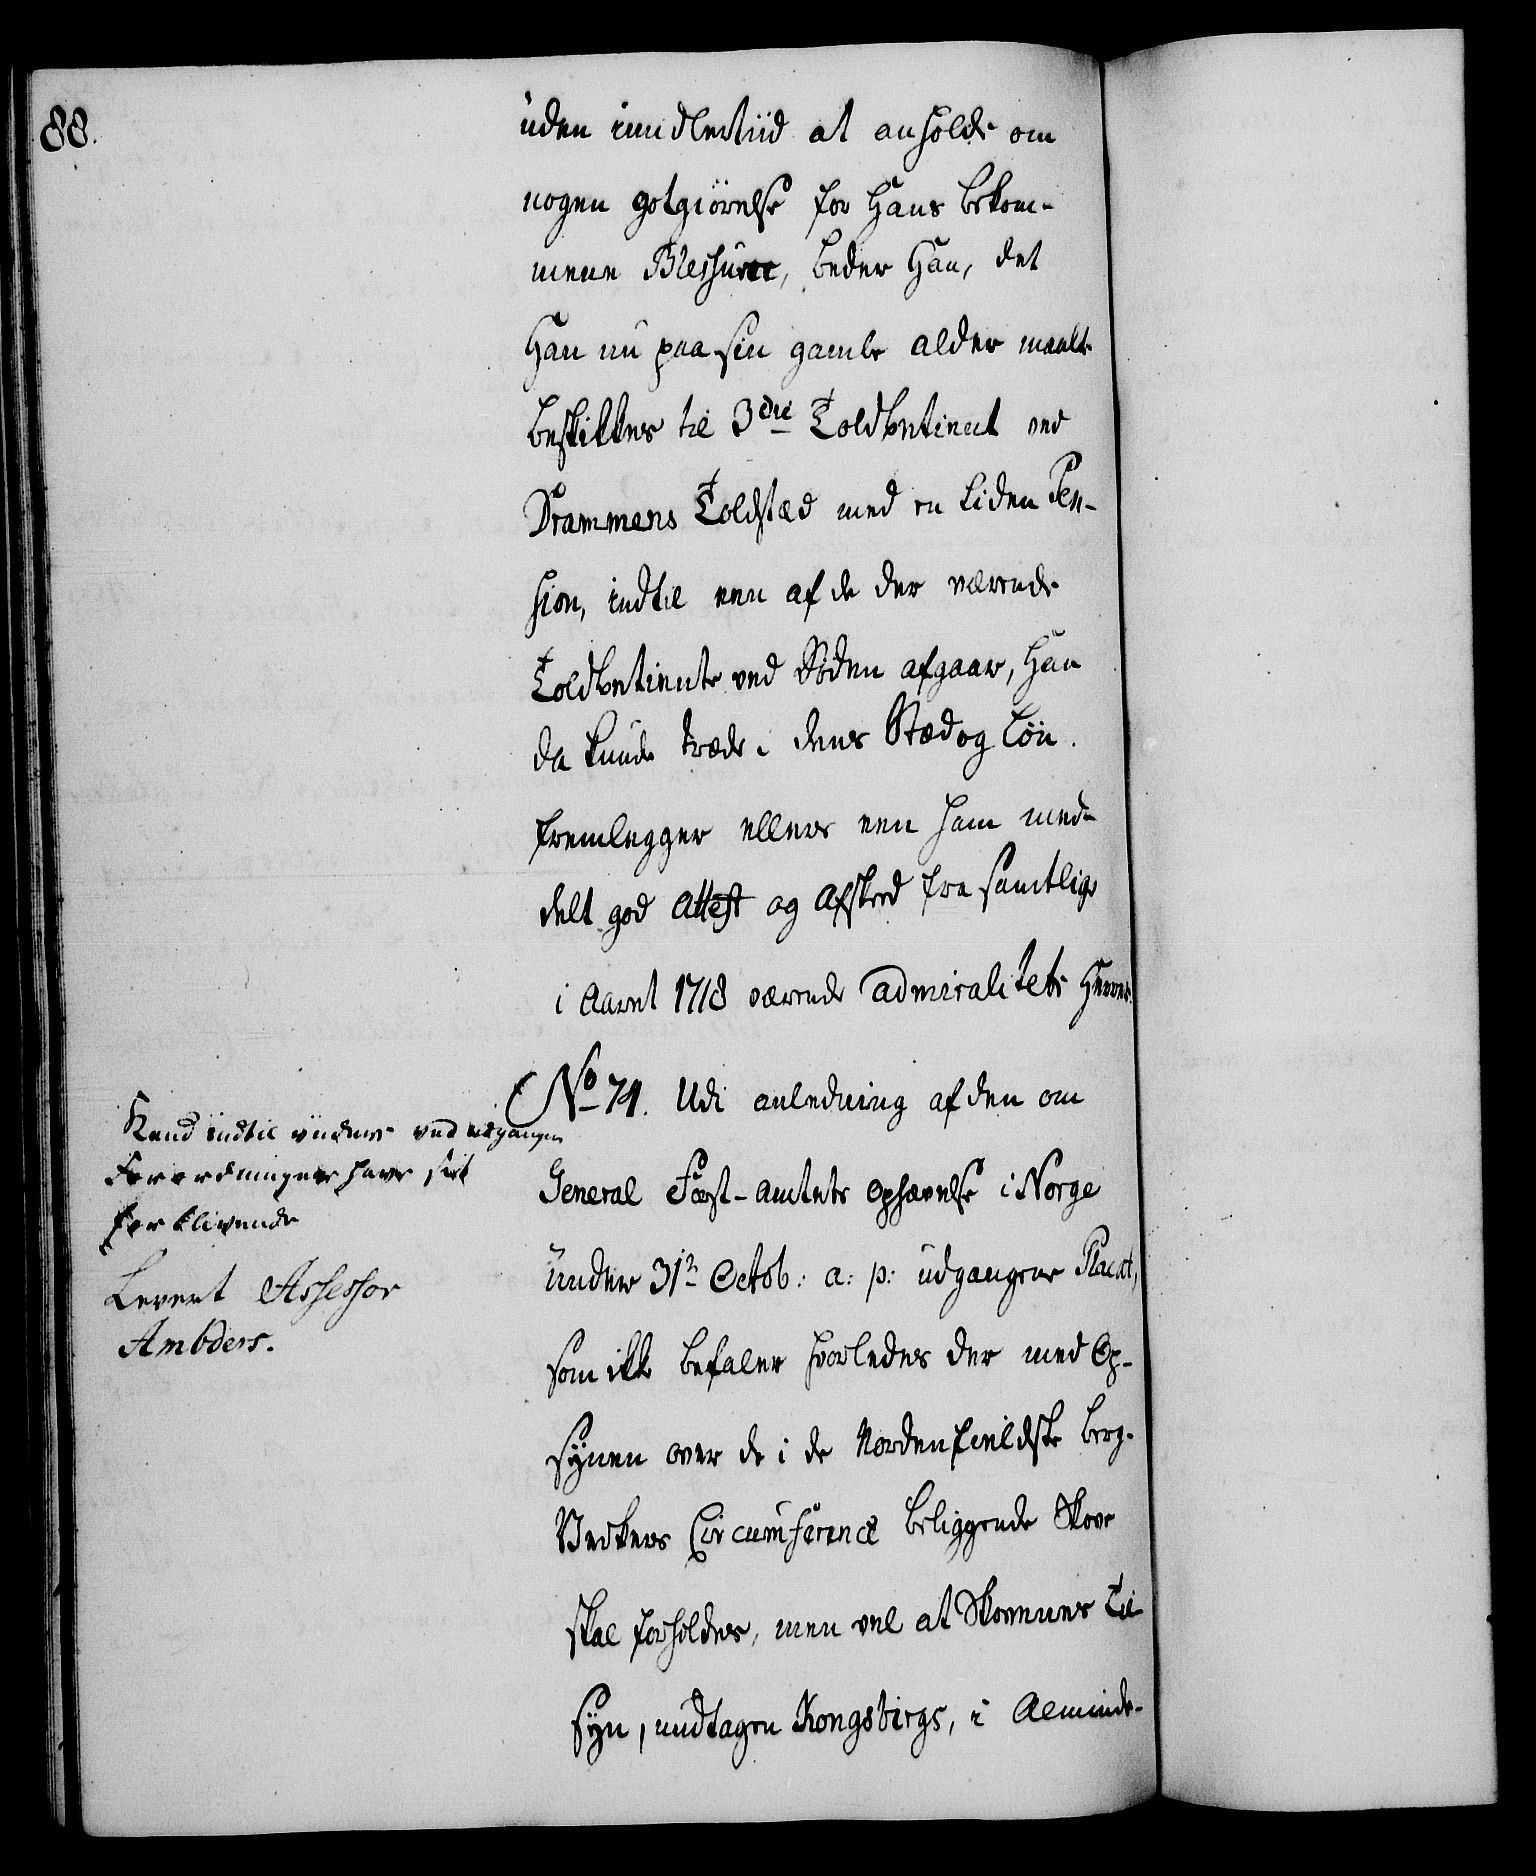 88.
uden imidlertiid at anholde om
nogen godtgiörelse for Hans bekom-
mene Blessure, beder Han, det
Han nu paa sin gamle alder maatte
beskikkes til 3die Toldbetient ved
Drammens Toldsted med en liden Pen-
sion, indtil een af de der værende
Toldbetiente ved Döden afgaar, Han
da kunde træde i dens Sted og Lön.
fremlegger ellers een ham med-
delt god Attest og Afskeed fra samtlige
i Aaret 1718 værende Admiralitets Herrer.
No 74. Udi anledning af den om
General Forst-amtets ophævelse i Norge
under 31te Octob: a: p: udgangne Placat,
som ikke befaler hvorledes der med Op-
synen over de i de Nordenfieldske Berg-
Verkers Circumference beliggende Skove
skal forholdes, men vel at Skovenes Til
syn, undtagen Kongsbergs, i Alminde-
Kand indtil viidere ved udgangne
Forordninger have sit
forblivende
Levert Assessor
Ambders.